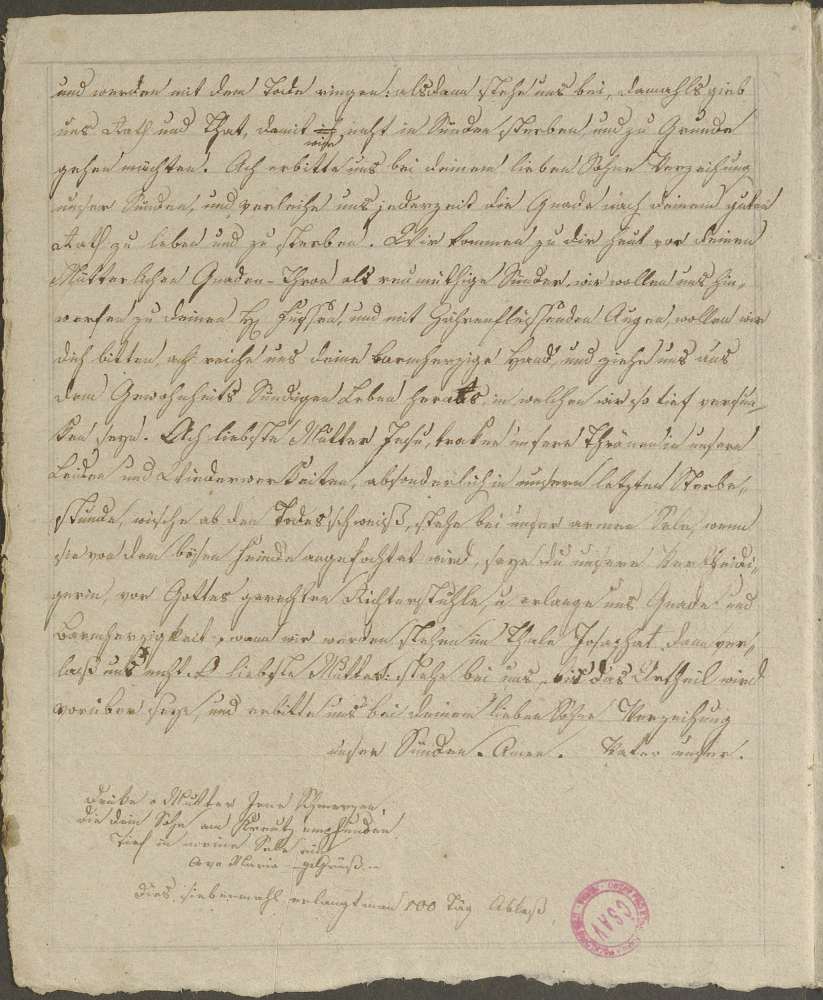 und werden mit dem Tode ringen: alsdann stehe uns bei, damahls gieb
uns Rath und That, damit wir nicht in Sünden sterben und zu Grunde
gehen möchten. Ach erbitte uns bei deinem lieben Sohne Verzeihung
unser Sünden, und verleihe uns jederzeit die Gnade nach deinem guten
Rath zu leben und zu sterben. Wir kommen zu dir heut vor deinen
Mütterlichen Gnaden-Thron als reumüthige Sünder, wir wollen uns hin„
werfen zu deinen Füssen, und mit Augen wollen wir
dich bitten, ach reiche uns deine barmherzige Hand, und ziehe uns aus
dem Gewohnheits Sündigen Leben heraus, in welchen wir so tief versun„
ken seyn. Ach liebste Mutter Jesu, trokne unsere Thränen in unsern
Leiden und Wiederwertkeiten, absonderlich in unsern letzten Sterbe„
stunde, wische ab den Todesschweiß, stehe bei unser armen Sele, wenn
sie von dem bösen Feinde angefochtet wird, seye du unsere Vertheidi„
gerin, vor Gottes gerechten Richterstuhle, u erlange uns Gnade und
Barmherzigkeit, wann wir werden stehen im Thale Josaphat, dann ver„
laß uns nicht O liebste Mutter: stehe bei uns, bis das Urtheil wird
vorüber seyn, und erbitte uns bei deinem lieben Sohne Verzeihung
unser Sünden. Amen. Vater unser.
Drüke o Mutter jene Schmerzen,
die dein Sohn am Kreutz empfunden
Tief in meine Sele ein
Ave Maria gegrüß
Dies siebenmahl erlangt man 100 Täg Ablaß
ČSAV